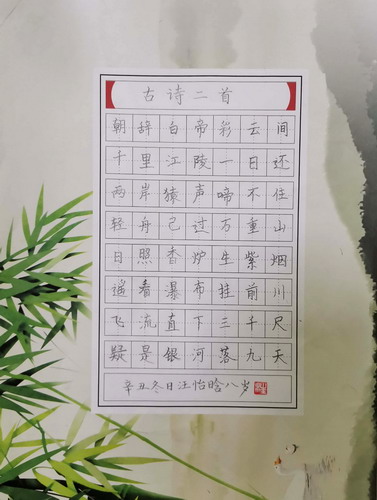 古诗二首
朝辞白帝彩云间
千里江陵一日还
两岸猿声啼不住
轻舟已过万重山
日照香炉生紫烟
遥看瀑布挂前川
飞流直下三千尺
疑是银河落九天
辛丑冬日汪怡晗八岁